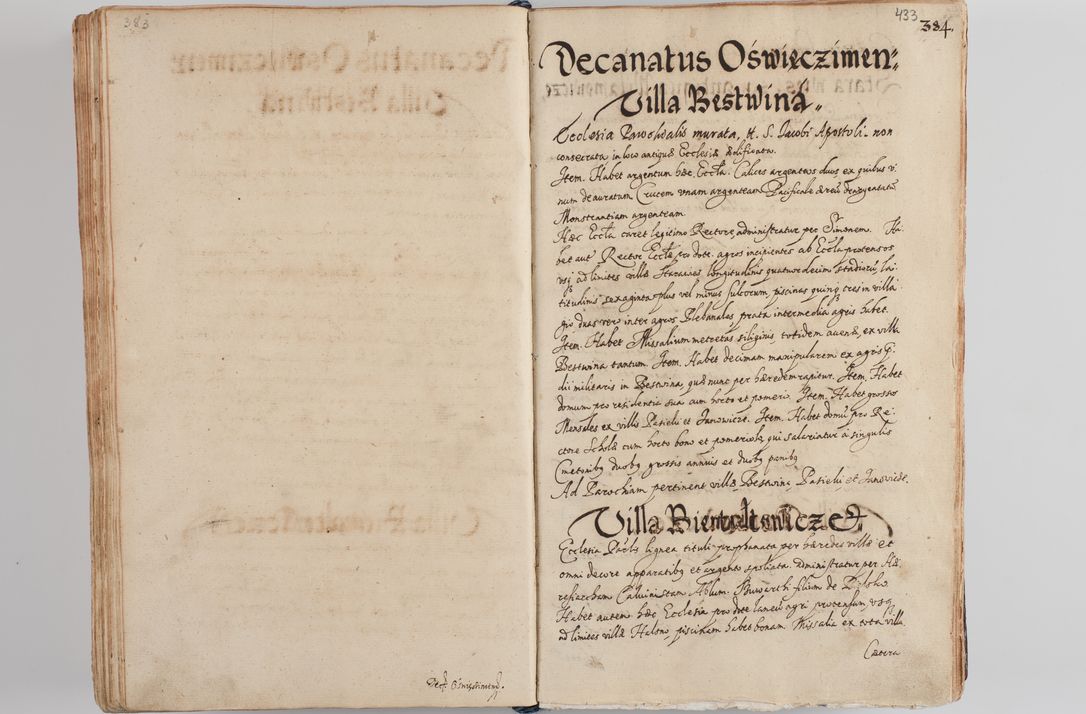 383
Dec. Oświęcimen.
433
384.
Decanatus Oświęczimen:
Villa Bestwina
Ecclesia Parochialis murata, tt. S. Jacobi Apostoli non
consecrata in loco antiquæ Ecclesiæ ædificata.
Item. Habet argentum hæc Eccla. Calices argenteos duos ex quibus v
num deauratum Crucem vnam argenteam Pacificale æreũ deargentatũ
Monstrantiam argenteam.
Hæc Eccla caret legitimo Rectore, administratur per Simonem. Ha:
bet aut Rector Ecclæ pro dote agros incipientes ab Eccla protensos
vsq ad limites villæ longitudinis quatuordecim stadiorũ, lati:
titudinis sexaginta plus vel minus sulcorum, piscinas quinq tres in villa
gio duas vero inter agros Plebanales prata intermedia agris habet.
Item. Habet Missalium metretas siliginis, totidem auenæ, ex villa
Bestwina tantum. Item. Habet decimam manipularem ex agris p:
dii militaris in Bestwina, quæ nunc per hæredem rapitur. Item. Habet
domum pro residentia sua cum horto et pomerio. Item. Habet grosso
Mensales ex villis Pasieki et Janowicze. Item. Habet domũ pro Re:
ctore Scholæ cum horto bono et pomeriolo, qui salariatur a singulis
Cmetonibq duobq grossis annuis et duobq panibq
Ad Parochiam pertinent villæ, Bestwina, Pasieki, et Janowicze.
Villa Biertoltowicze
Ecclesia Paclis lignea tituli prophanata per hæredes villæ et
omni decore apparatibq et argento spoliata. Administratur per Hæ
resiarcham Caluinistam filium de
Habet autem hæc Ecclesia pro dote laneũ agri protensum, vsq
ad limites villæ Halsno, piscinam habet bonam. Missalia ex tota villa
Cætera